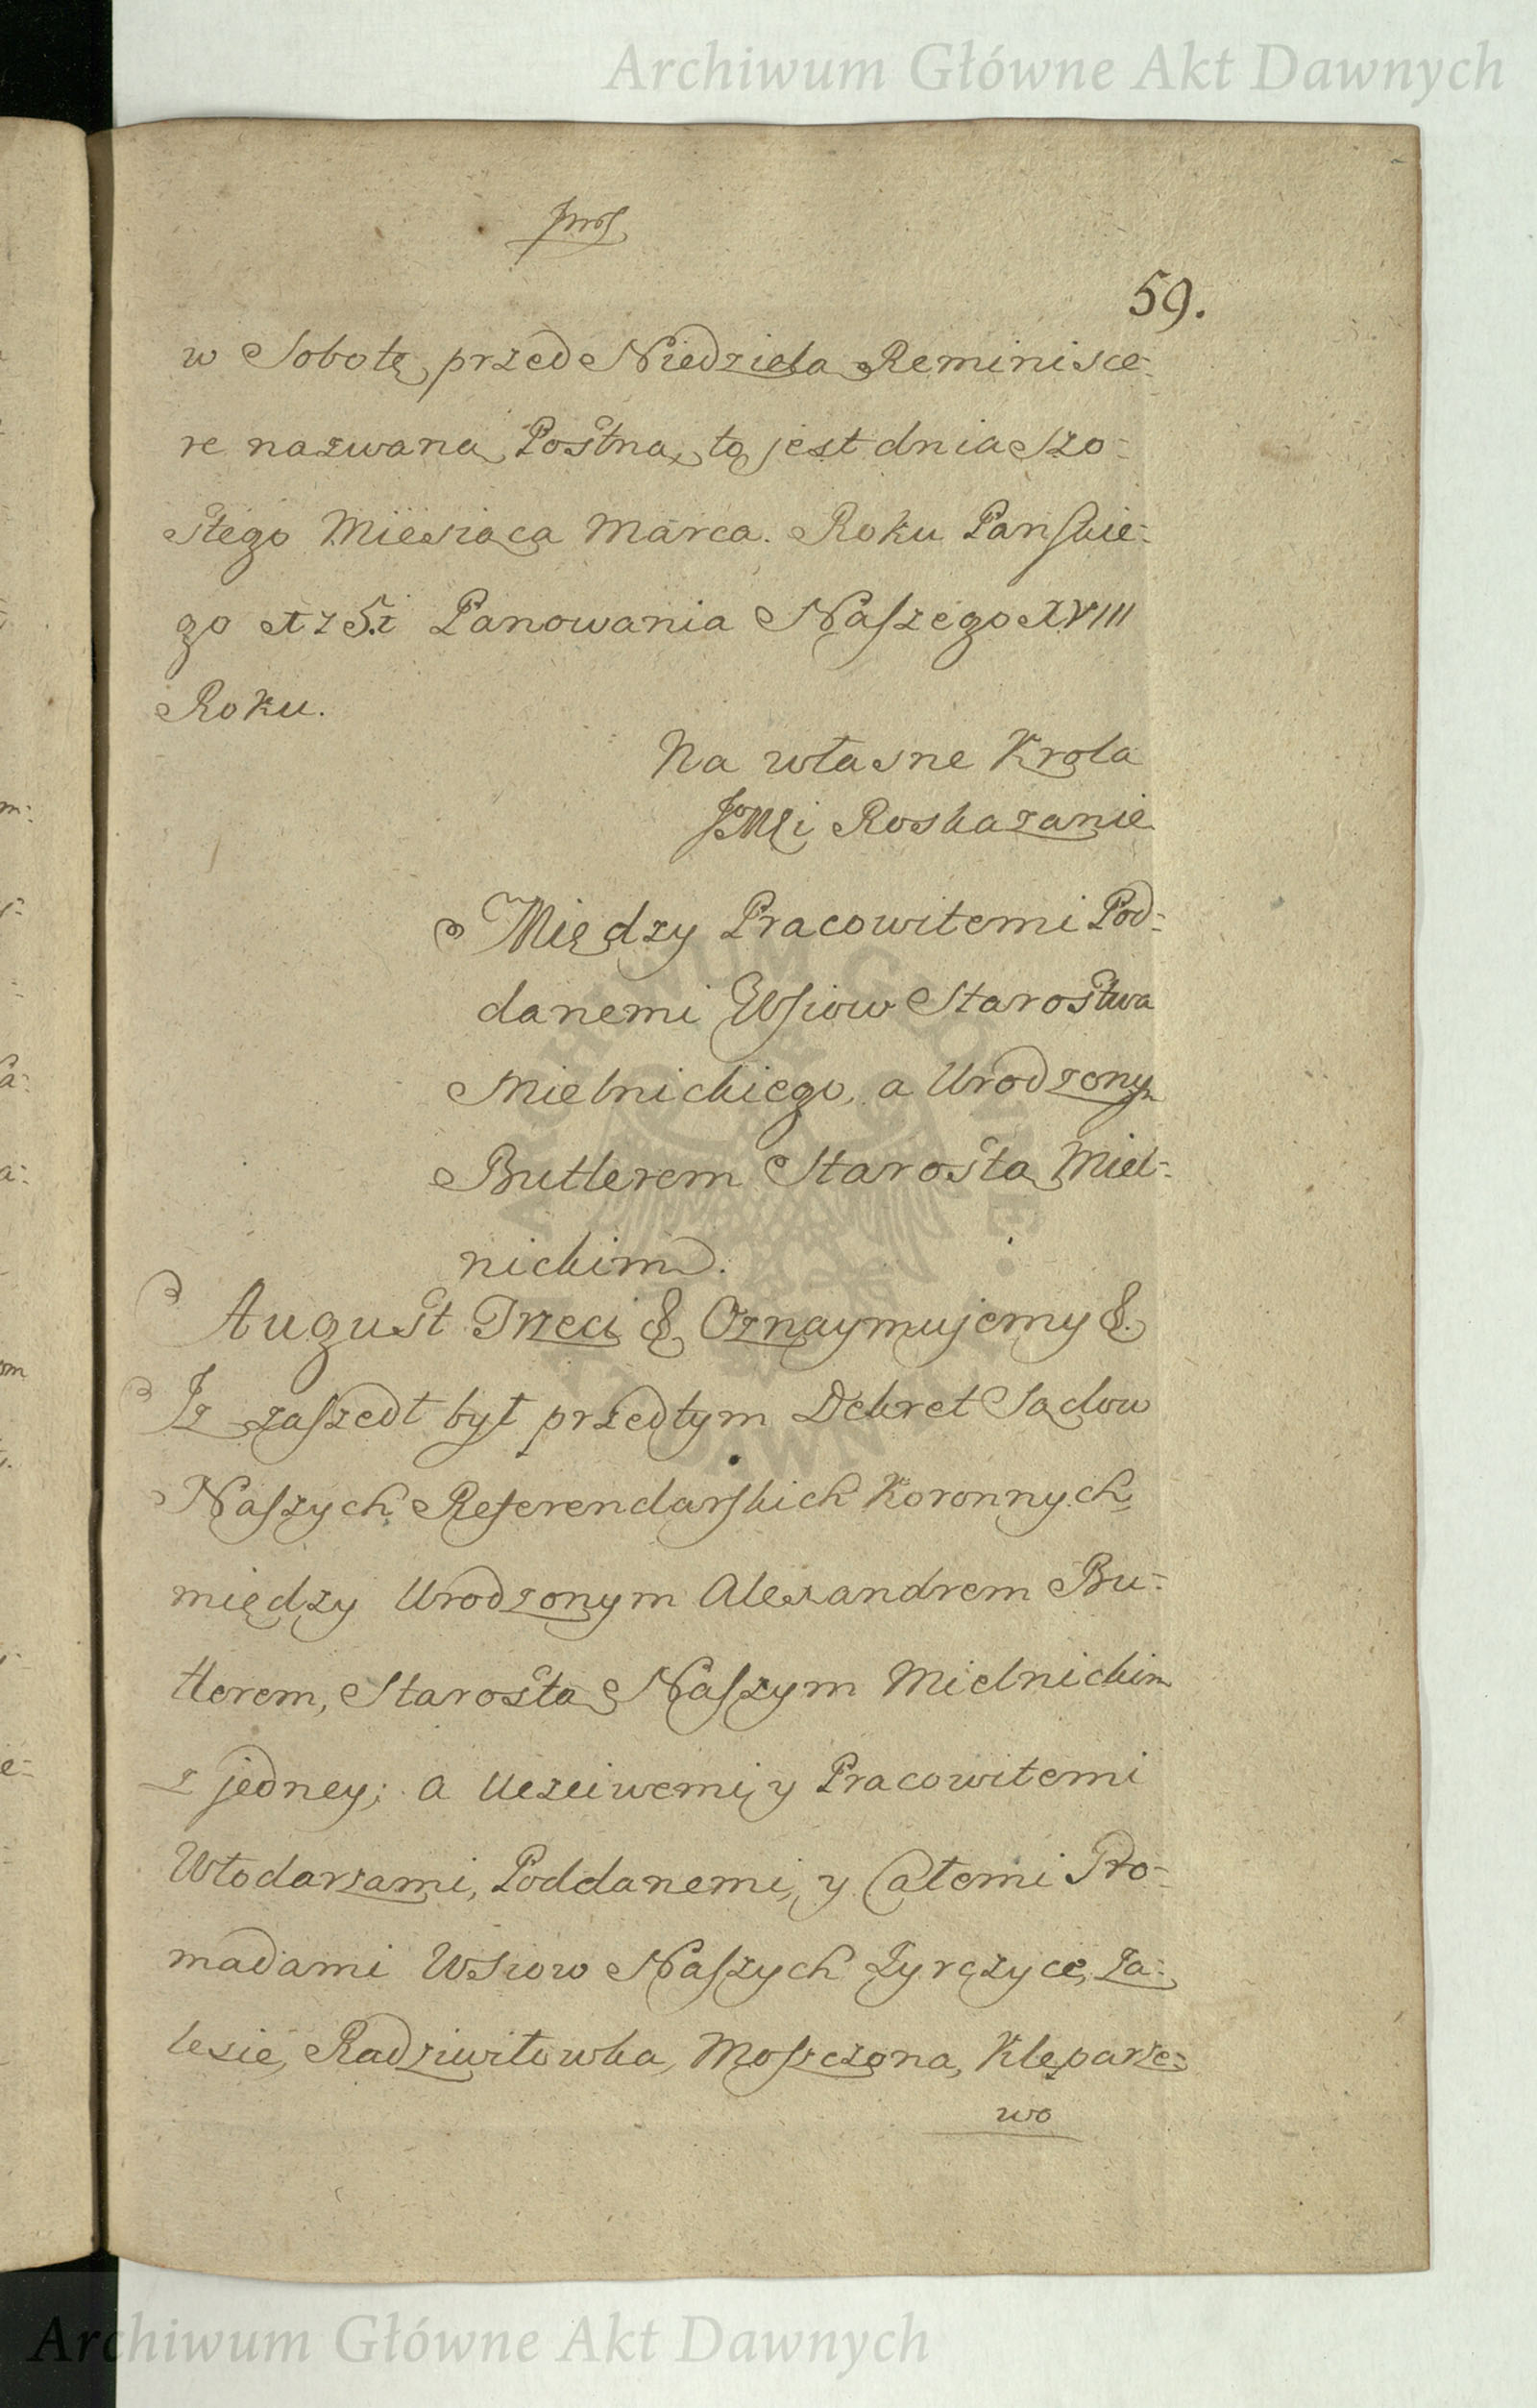 Archiwum Główne Akt Dawnych
59.
w Sobotę przed Niedzielą Reminisce-
re nazwaną Postną, to jest dnia Szo-
stego Miesiąca Marca. Roku Pańskie-
go Panowania Naszego XVIII
Roku.
Na własne Krola
JKMSCi Roskazanie
Między Pracowitemi Pod-
danemi Wsiow Starostwa
Mielnickiego, a Urodzonym
Butlerem Starostą Miel-
nickim.
August Trzeci &, Oznaymujemy &.
Jż zaszedł był przedtym Dekret Sądow
Naszych Referendarskich Koronnych,
między Urodzonym Alexandrem Bu-
tlerem, Starostą Naszym Mielnickim
z jedney; a Uczciwemi, y Pracowitemi
Włodarzami, Poddanemi, y Całemi Gro-
madami Wsiow Naszych Zyrczyce, Za-
lesie, Radziwiłowka, Moszczona, Kleparze-
wo
Archiwum Główne Akt Dawnych